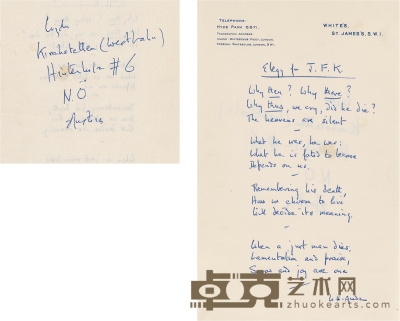 Kirchstetten (Westbahn)
Hinterholz #6
N.Ö
Austria
TELEPHONE:
HYDE PARK 0611.
WHITE'S,
ST. JAMES'S, S.W.1.
Elegy for J.F.K
Why then? Why there?
Why thus, we cry, did he die?
The heavens are silent
What he was, he was:
What he is fated to become
Depends on us
Remembering his death,
How we choose to live
Will decide its meaning.
When a just man dies,
Lamentation and praise,
Sorrow and joy are one
W.H. Auden
艺术网
zhuokearts.com